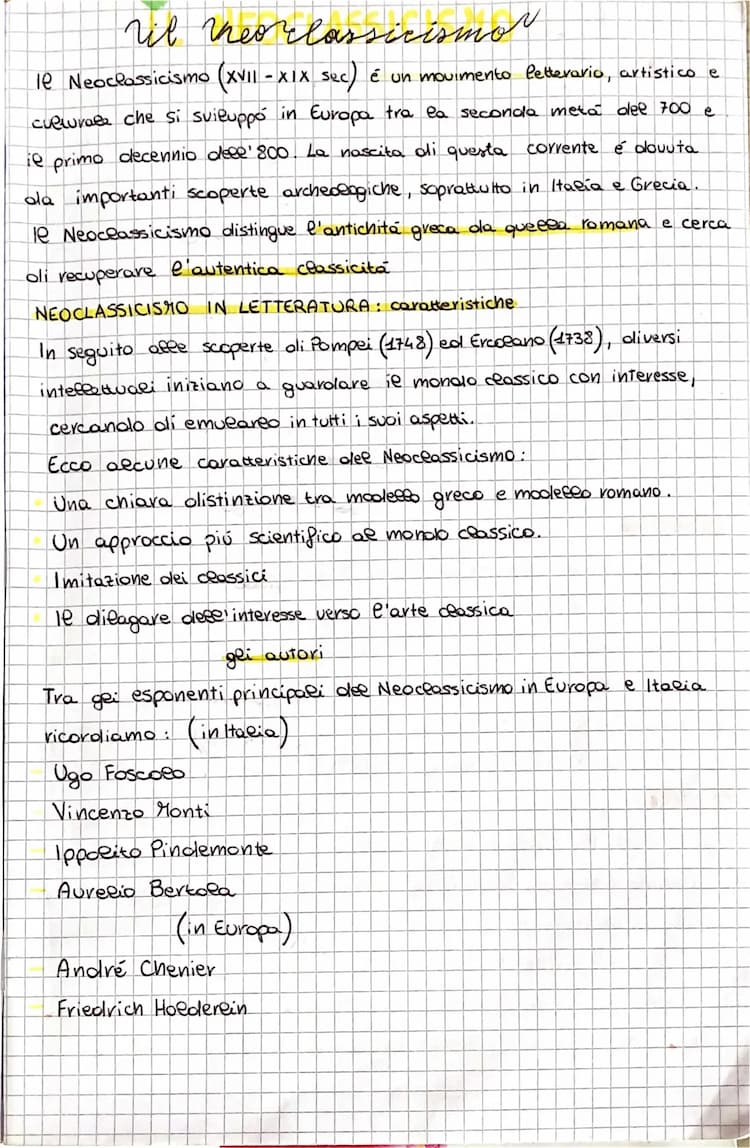 il Neoclassicismo
Il Neoclassicismo (XVII - XIX sec) é un movimento letterario, artistico e
culturale che si sviluppó in Europa tra la seconda metá del 700 e
il primo decennio dell'800. La nascita di questa corrente é dovuta
da importanti scoperte archeologiche, soprattutto in Italia e Grecia.
Il Neoclassicismo distingue l'antichitá greca da quella romana e cerca
di recuperare l'autentica classicitá
NEOCLASSICISMO IN LETTERATURA: caratteristiche
In seguito alle scoperte di Pompei (1748) ed Ercolano (1738), diversi
intellettuali iniziano a guardare il mondo classico con interesse,
cercando di emularlo in tutti i suoi aspetti.
Ecco alcune caratteristiche del Neoclassicismo:
Una chiara distinzione tra modello greco e modello romano.
Un approccio piú scientifico al mondo classico.
Imitazione dei classici
Il dilagare dell'interesse verso l'arte classica
gli autori
Tra gli esponenti principali del Neoclassicismo in Europa e Italia
ricordiamo: (in Italia)
Ugo Foscolo
Vincenzo Monti
Ippolito Pindemonte
Aurelio Bertola
(in Europa)
André Chenier
Friedrich Holderlin